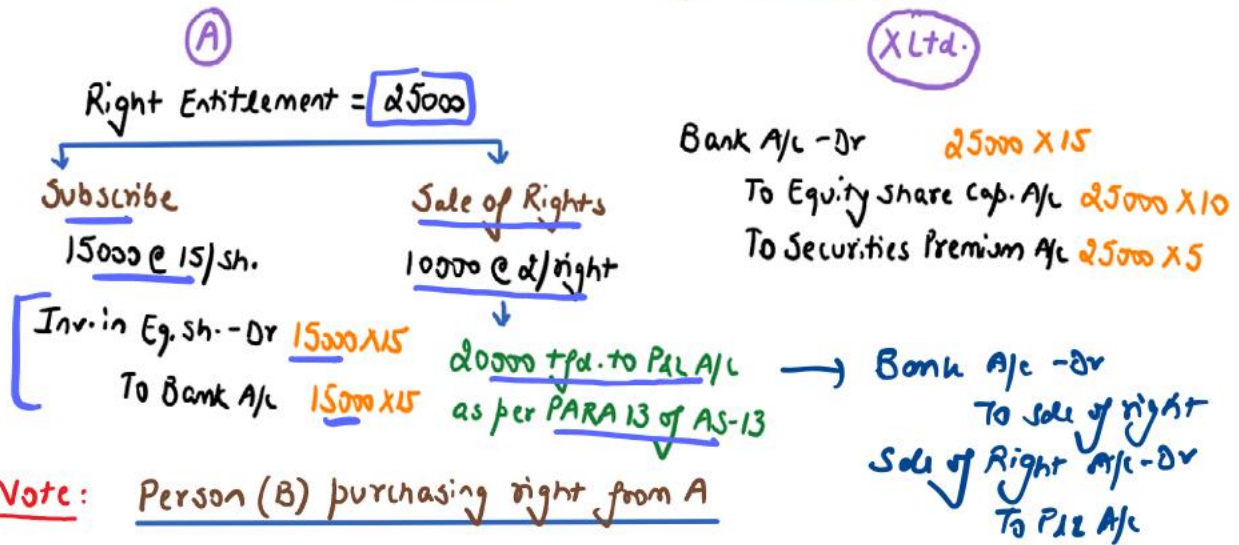 A
Right Entitlement = 25000
Subscribe
15000 @ 15/sh.
Inv. in Eq. sh. - Dr 15000 X 15
To Bank A/c 15000 X 15
Sale of Rights
10000 @ 2/right
20000 tfd. to P&L A/c
as per PARA 13 of AS-13
X Ltd.
Bank A/c - Dr 25000 X 15
To Equity share Cap. A/c 25000 X 10
To Securities Premium A/c 25000 X 5
Bank A/c - Dr
To sale of right
Sale of Right A/c - Dr
To P&L A/c
Note: Person (B) purchasing right from A